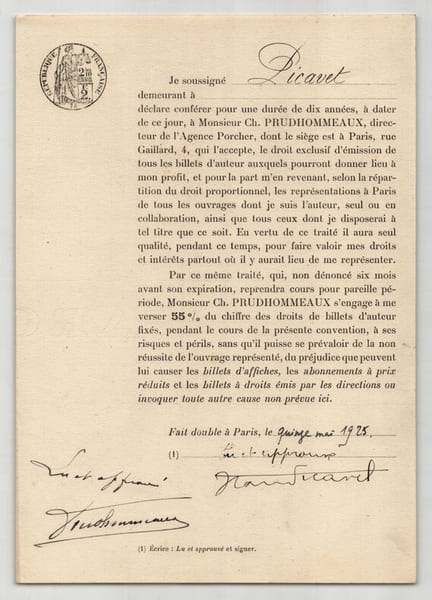 RÉPUBLIQUE FRANÇAISE
Je soussigné Picavet
demeurant à
déclare conférer pour une durée de dix années, à dater
de ce jour, à Monsieur Ch. PRUDHOMMEAUX, direc-
teur de l'Agence Porcher, dont le siège est à Paris, rue
Gaillard, 4, qui l'accepte, le droit exclusif d'émission de
tous les billets d'auteur auxquels pourront donner lieu à
mon profit, et pour la part m'en revenant, selon la répar-
tition du droit proportionnel, les représentations à Paris
de tous les ouvrages dont je suis l'auteur, seul ou en
collaboration, ainsi que tous ceux dont je disposerai à
tel titre que ce soit. En vertu de ce traité il aura seul
qualité, pendant ce temps, pour faire valoir mes droits
et intérêts partout où il y aurait lieu de me représenter.
Par ce même traité, qui, non dénoncé six mois
avant son expiration, reprendra cours pour pareille pé-
riode, Monsieur Ch. PRUDHOMMEAUX s'engage à me
verser 55 % du chiffre des droits de billets d'auteur
fixés, pendant le cours de la présente convention, à ses
risques et périls, sans qu'il puisse se prévaloir de la non
réussite de l'ouvrage représenté, du préjudice que peuvent
lui causer les billets d'affiches, les abonnements à prix
réduits et les billets à droits émis par les directions ou
invoquer toute autre cause non prévue ici.
Fait double à Paris, le quinze mai 1925.
(1) Lu et approuvé
Picavet
Lu et approuvé
Prudhommeaux
(1) Écrire : Lu et approuvé et signer.